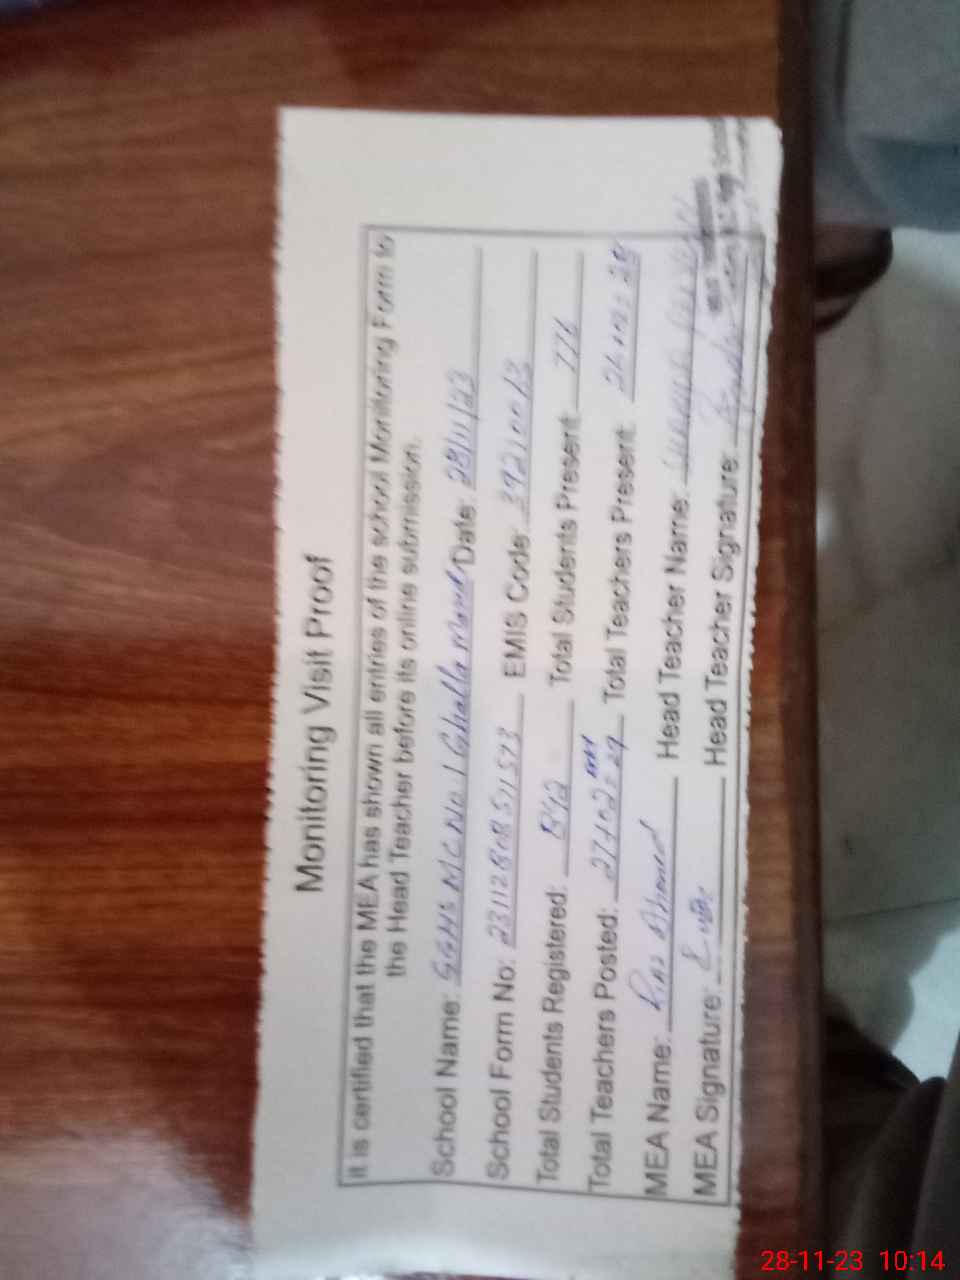 Monitoring Visit Proof
It is certified that the MEA has shown all entries of the school Monitoring Form to
the Head Teacher before its online submission.
School Name: GGHS MC No. 1 Ghalla Mandi Date: 28/11/23
School Form No: EMIS Code: 39210013
Total Students Registered: 892 Total Students Present: 776
Total Teachers Posted: 27+02=29 Total Teachers Present:
MEA Name: Riaz Ahmed Head Teacher Name:
MEA Signature: Head Teacher Signature:
28-11-23 10:14